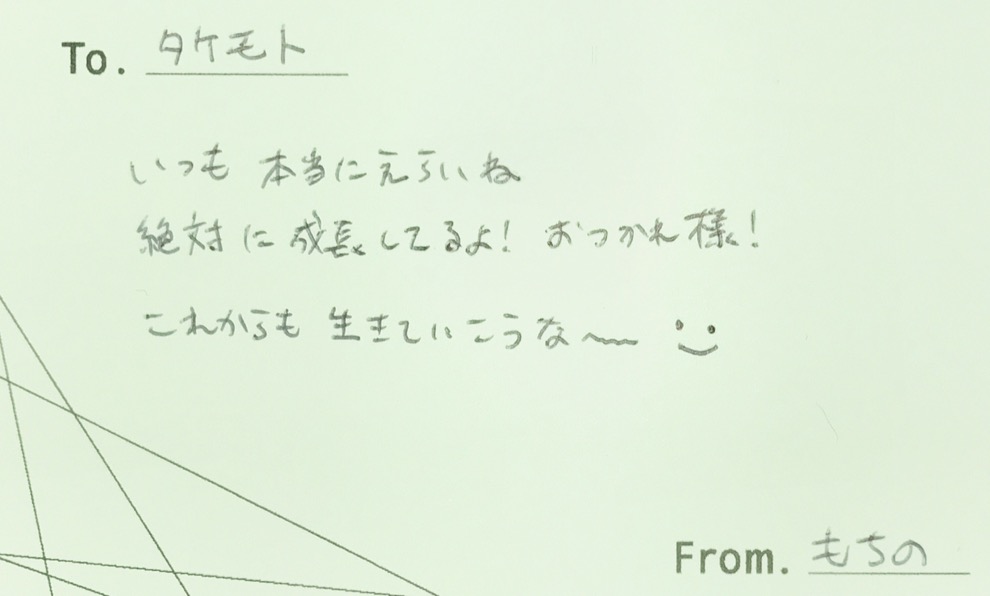 To. タケモト
いつも 本当にえらいね
絶対に成長してるよ! おつかれ様!
これからも 生きていこうな〜
From. もちの